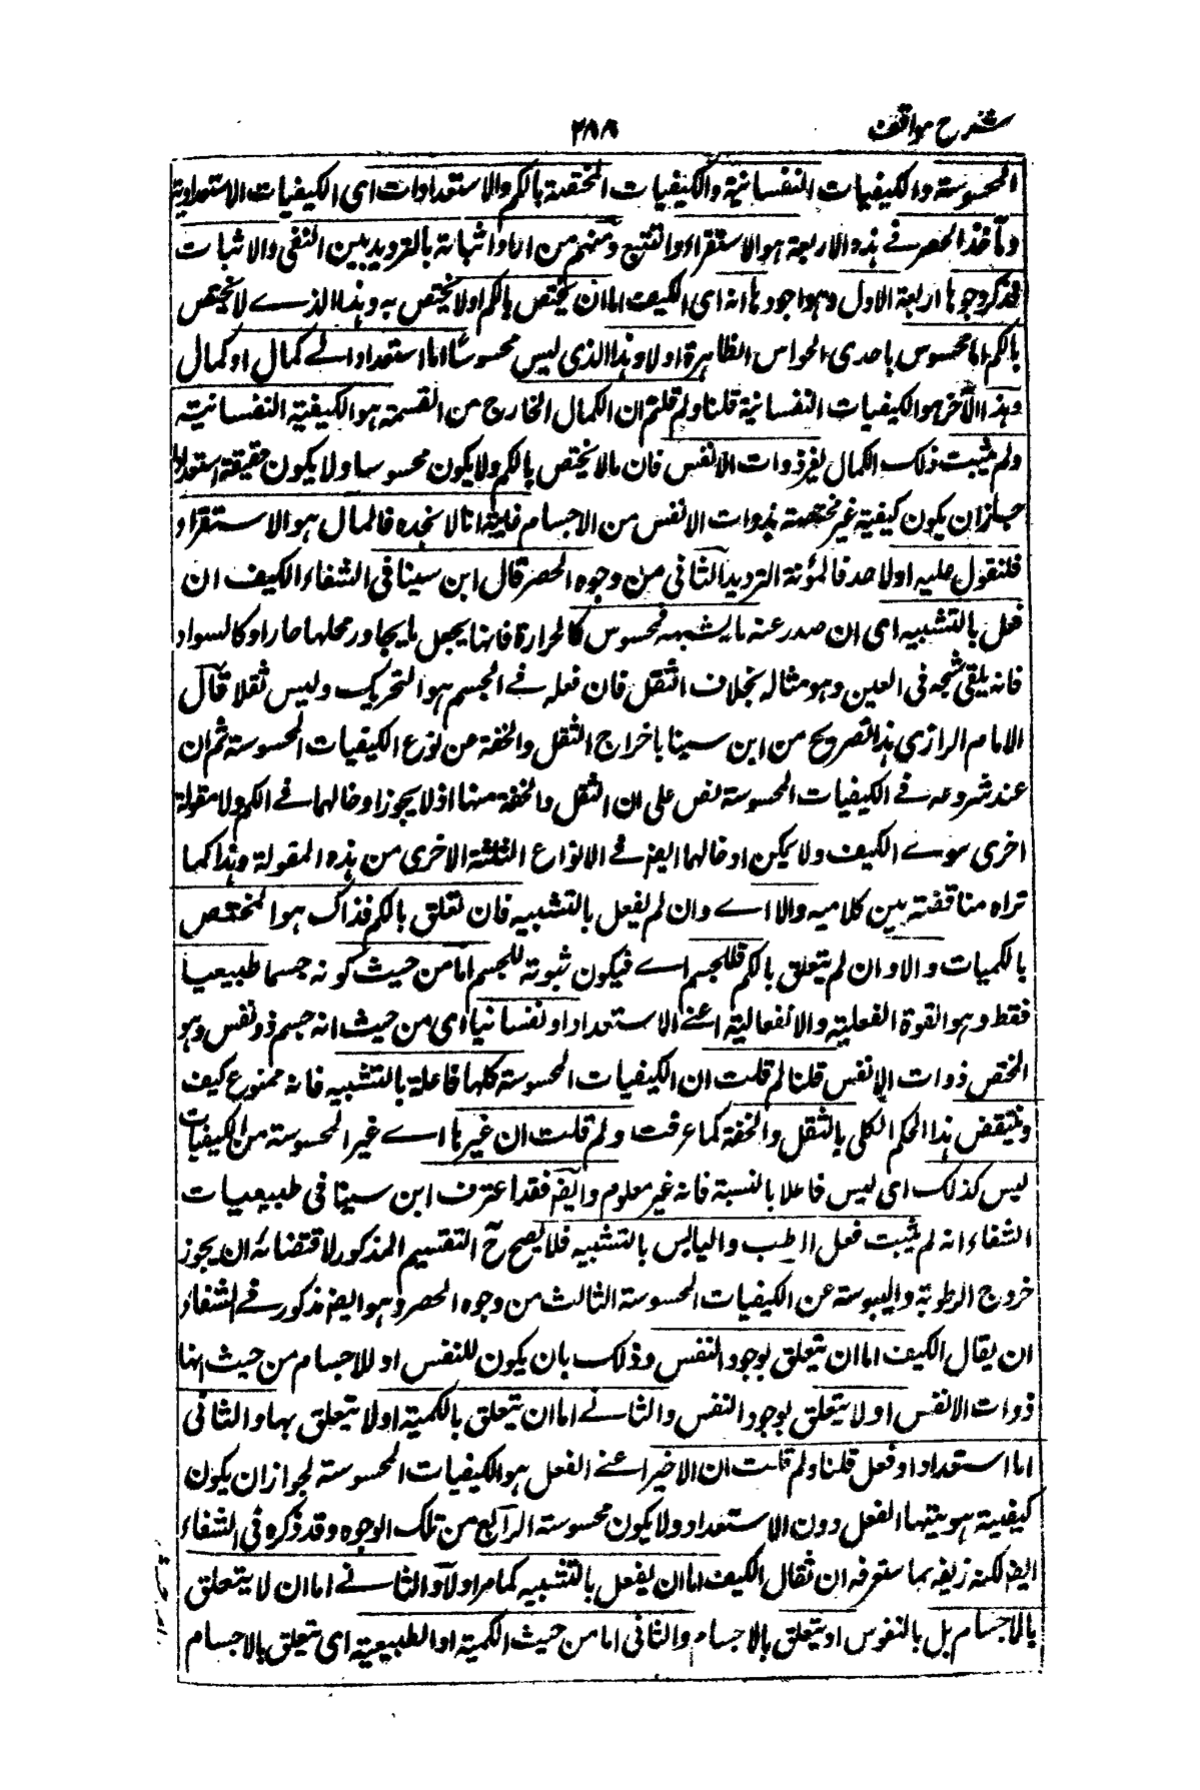 شرح مواقف
٢٨٨
المحسوسة والكيفيات النفسانية والكيفيات المختصة بالكم والاستعدادات اى الكيفيات الاستعدادية
ومأخذ الحصر فے هذه الاربعة هو الاستقراء والتتبع ومنهم من اراد اثباته بالترديد بين النفى والاثبات
فذكروا وجوها اربعة الاول وهو اجودها انه اى الكيف اما ان يختص بالكم اولا يختص به وهذا الذے لا يختص
بالكم اما محسوس باحدى الحواس الظاهرة اولا وهذا الذى ليس محسوسا اما استعداد الے كمال او كمال
وهذا الآخر هو الكيفيات النفسانية قلنا ولم قلتم ان الكمال الخارج من القسمة هو الكيفية النفسانية
ولم يثبت ذلك الكمال لغير ذوات الانفس فان مالا يختص بالكم ولا يكون محسوسا ولا يكون حقيقة استعدادا
جاز ان يكون كيفية غير مختصة بذوات الانفس من الاجسام فلئن انا لا نجده فالمال هو الاستقراء
فلنقول عليه اولا حذفا لمؤنة الترديد الثانى من وجوه الحصر قال ابن سينا فى الشفاء الكيف ان
فعل بالتشبيه اى ان صدر عنه ما يشبهه فمحسوس كالحرارة فانها يجعل ما يجاور محلها حارا وكالسواد
فانه يلقى شبحه فى العين وهو مثاله بخلاف الثقل فان فعله فے الجسم هو التحريك وليس ثقلا قال
الامام الرازى هذا تصريح من ابن سينا باخراج الثقل والخفة من نوع الكيفيات المحسوسة ثم ان
عند شروعه فے الكيفيات المحسوسة نص على ان الثقل والخفة منها اذ لا يجوز ادخالهما فے الكم ولا مقولة
اخرى سوے الكيف ولا يمكن ادخالهما ايضا فے الانواع الثلثة الاخرى من هذه المقولة وهذا كما
تراه مناقضة بين كلاميه والا اے وان لم يفعل بالتشبيه فان تعلق بالكم فذاك هو المختص
بالكميات والا وان لم يتعلق بالكم فللجسم اے فيكون ثبوته للجسم اما من حيث كونه جسما طبيعيا
فقط وهو القوة الفعلية والانفعالية اعنے الاستعداد او نفسانيا اى من حيث انه جسم ذو نفس وهو
المختص ذوات الانفس قلنا لم قلت ان الكيفيات المحسوسة كلها فاعلة بالتشبيه فانه ممنوع كيف
وينتقض هذا الحكم الكلى بالثقل والخفة كما عرفت ولم قلت ان غيرها اے غير المحسوسة من الكيفيات
ليس كذلك اى ليس فاعلا بالنسبة فانه غير معلوم وايضا فقد اعترف ابن سينا فى طبيعيات
الشفاء انه لم يثبت فعل الرطب واليابس بالتشبيه فلا يصح ح التقسيم المذكور لاقتضائه ان يجوز
خروج الرطوبة واليبوسة عن الكيفيات المحسوسة الثالث من وجوه الحصر وهو ايضا مذكور فے الشفاء
ان يقال الكيف اما ان يتعلق بوجود النفس وذلك بان يكون للنفس او للاجسام من حيث انها
ذوات الانفس اولا يتعلق بوجود النفس والثانے اما ان يتعلق بالكمية اولا يتعلق بها والثانى
اما استعداد او فعل قلنا ولم قلت ان الاخير اعنے الفعل هو الكيفيات المحسوسة لجواز ان يكون
كيفية هويتها الفعل دون الاستعداد ولا يكون محسوسة الرابع من تلك الوجوه وقد ذكره فى الشفاء
ايضا لكنه زيفه بما ستعرفه ان تقال الكيف اما ان يفعل بالتشبيه كما مر اولا والثانے اما ان لا يتعلق
بالاجسام بل بالنفوس او يتعلق بالاجسام والثانى اما من حيث الكمية او الطبيعية اى يتعلق بالاجسام